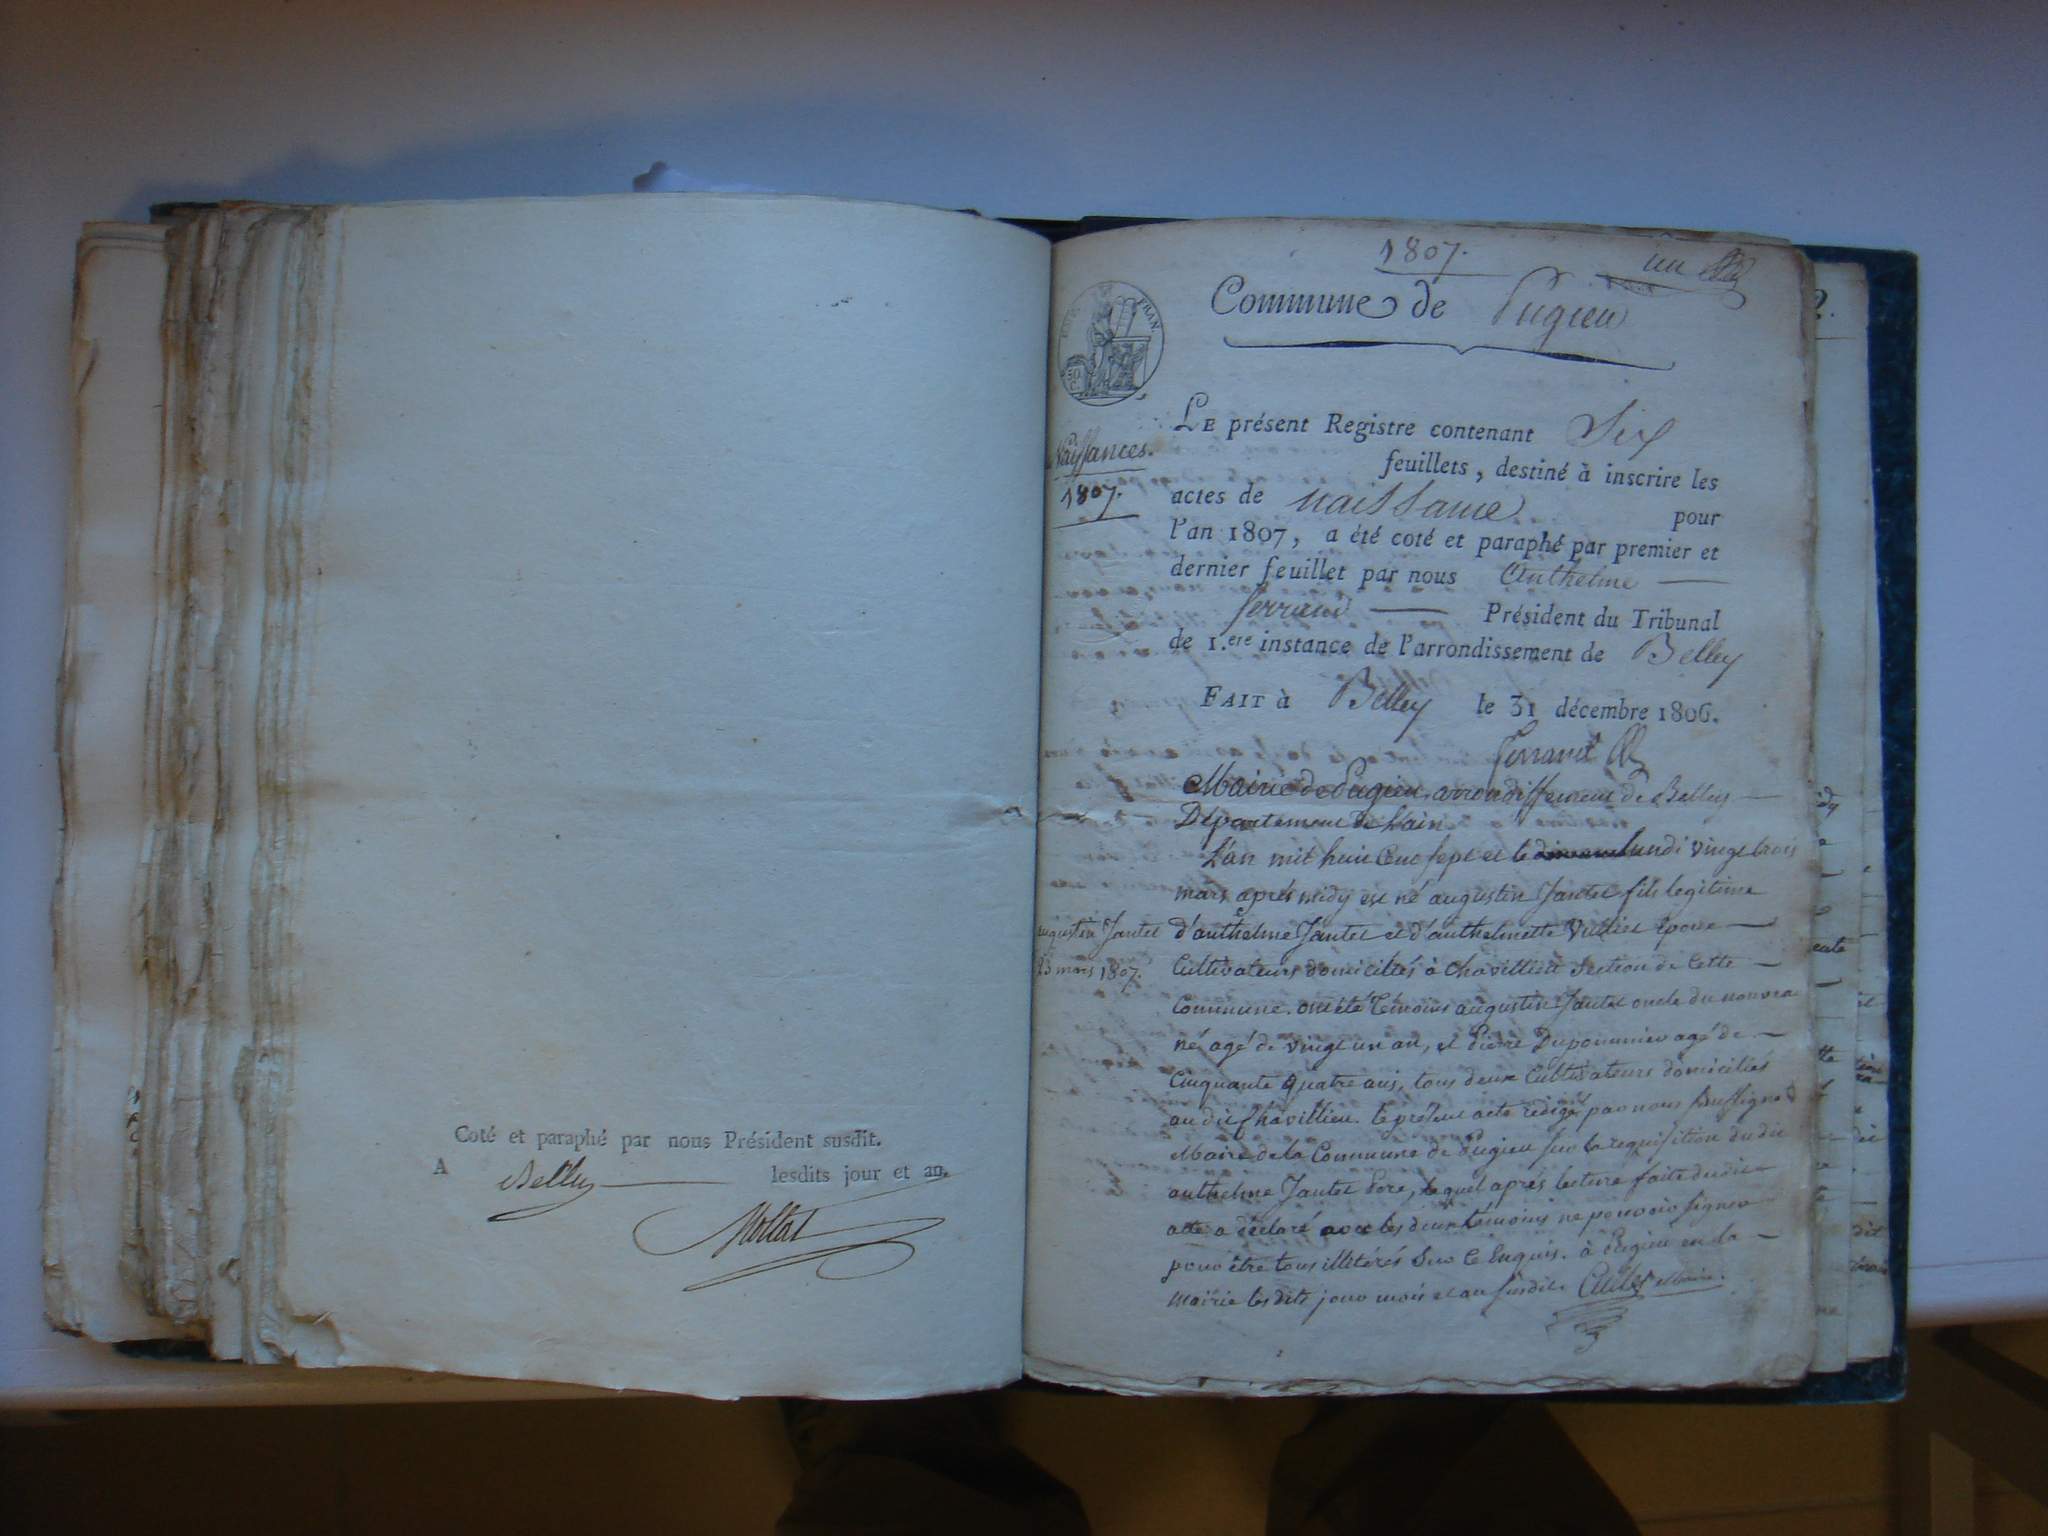 Coté et paraphé par nous Président susdit.
A Belley lesdits jour et an.
Mollat
1807.
un
Commune de Pugieu
FRAN.
50
C.
LE présent Registre contenant Six
feuillets, destiné à inscrire les
Naissances.
1807.
actes de naissance pour
l'an 1807, a été coté et paraphé par premier et
dernier feuillet par nous Anthelme
ferrand Président du Tribunal
de 1.ere instance de l'arrondissement de Belley
FAIT à Belley le 31 décembre 1806.
ferrand
Mairie de Pugieu, arrondissement de Belley
Département de L'ain.
L'an mil huit Cent sept et le lundi vingt trois
mars après midy est né augustin Jantet fils legitime
augustin Jantet
23 mars 1807.
d'anthelme Jantet et d'anthelmette Vullier épouse
Cultivateurs domiciliés à Chavillieu Section de Cette
Commune. ont été Témoins augustin Jantet oncle du nouveau
né agé de vingt un an, et Pierre Dupommier agé de
Cinquante quatre ans, tous deux Cultivateurs domiciliés
au dit Chavillieu. le présent acte redigé par nous Soussigné
Maire de la Commune de Pugieu sur la requisition du dit
anthelme Jantet Pere, lequel après lecture faite du dit
acte a déclaré avec les deux témoins ne pouvoir signer
pour être tous illitérés Sur Ce Enquis. à Pugieu en la
mairie les dits jour mois et an susdit. Maire.